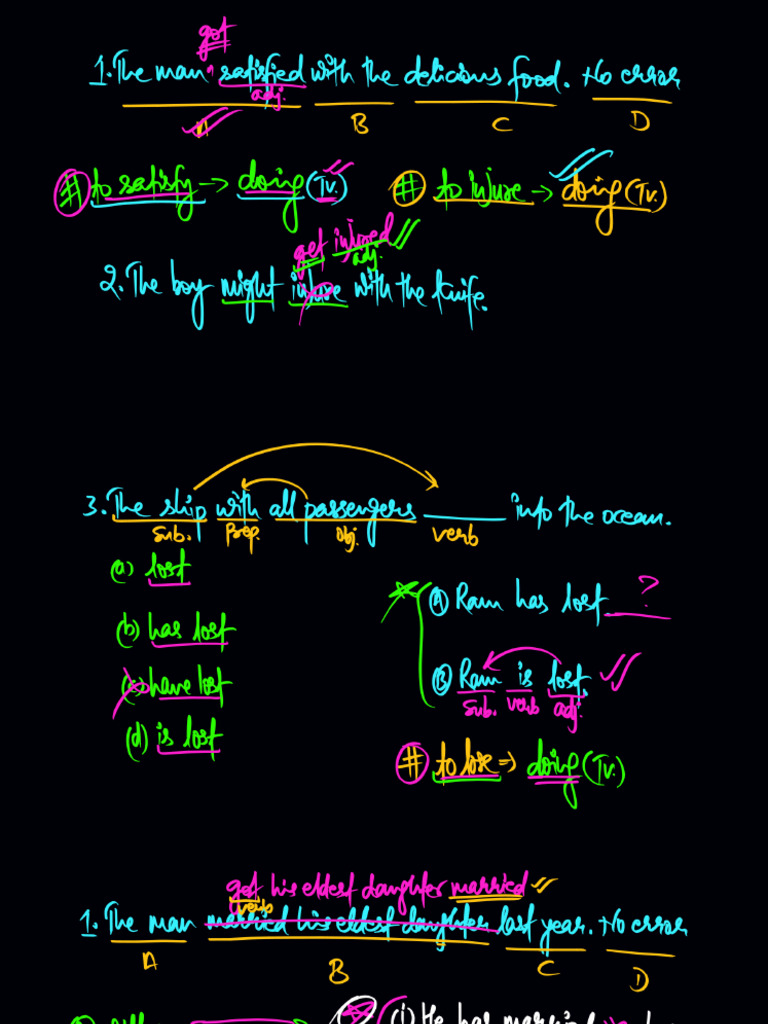 got
1. The man satisfied with the delicious food. No error
adj.
A B C D
# to satisfy → doing (Tv.) # to injure → doing (Tv.)
get injured
adj.
2. The boy might injure with the knife.
3. The ship with all passengers ______ into the ocean.
Sub. Prep. Obj. verb
(a) lost
(b) has lost
(c) have lost
(d) is lost
(A) Ram has lost ?
(B) Ram is lost.
Sub. verb adj.
# to lose ⇒ doing (Tv.)
get his eldest daughter married
verb
1. The man married his eldest daughter last year. No error
A B C D
(i) He has married